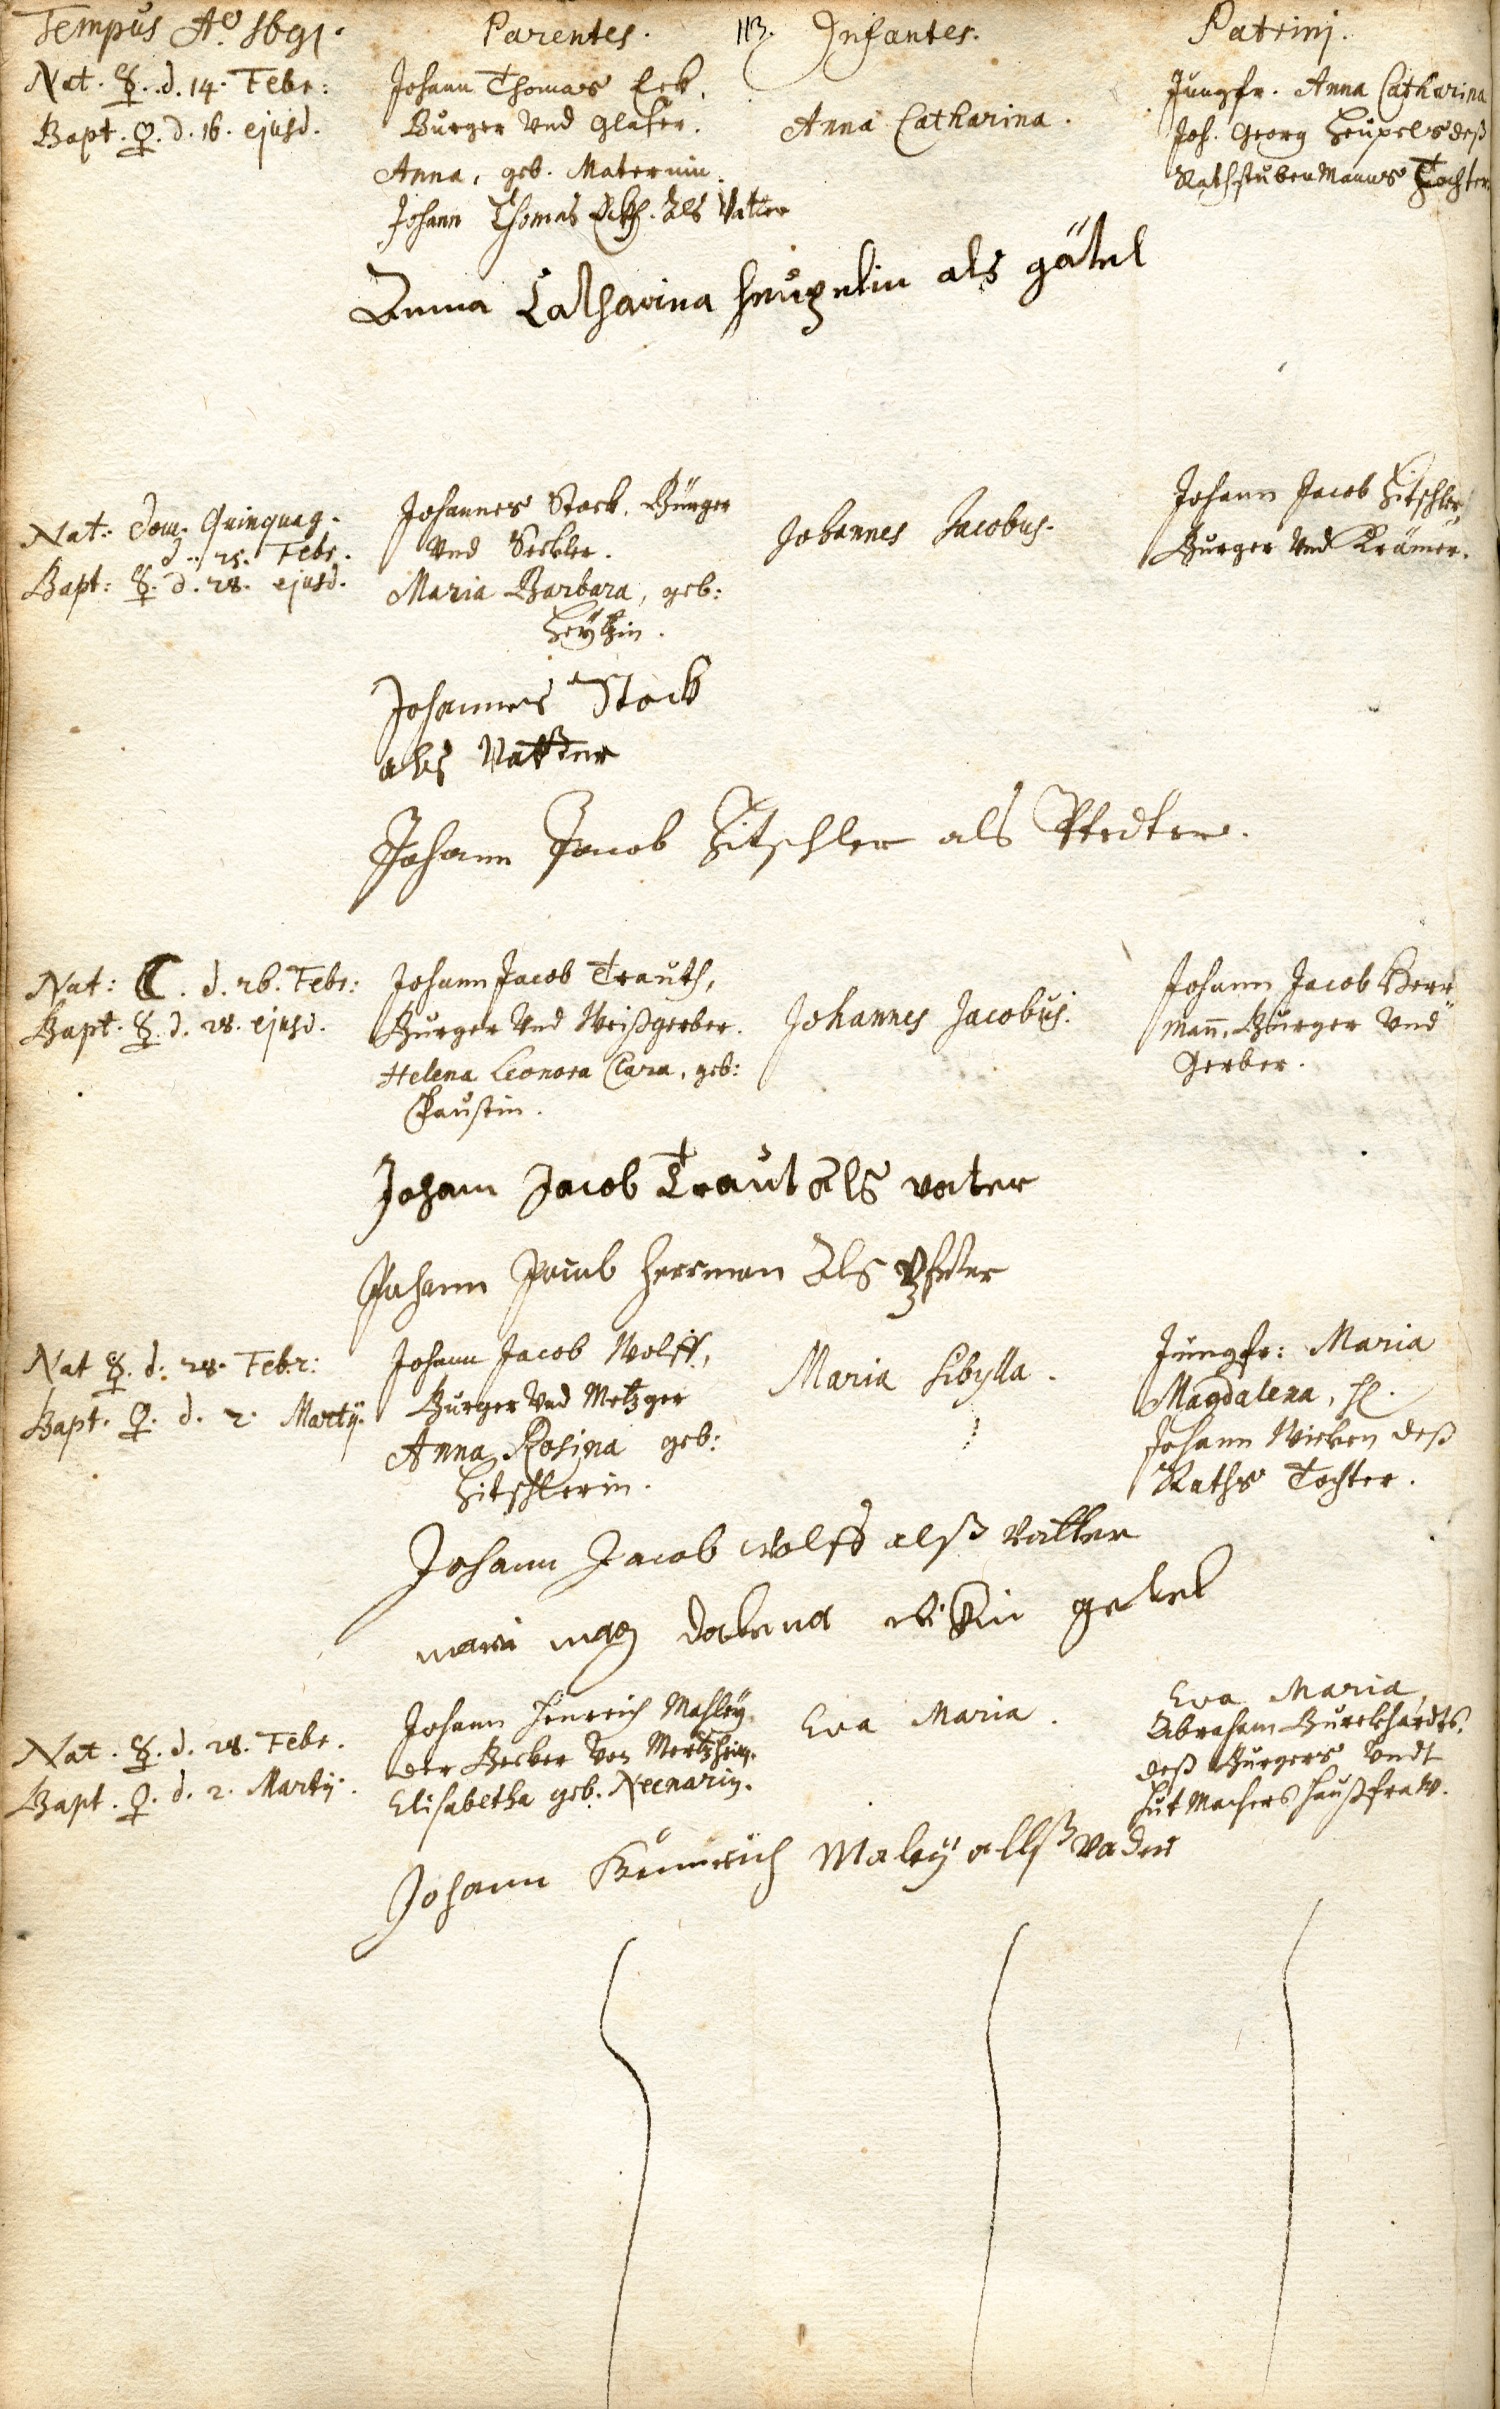 Tempus Aō 1691. Parentes. 113. Infantes. Patrini.
Nat. ☿. d. 14. Febr:
Bapt. ♀. d. 16. ejusd.
Johann Thomas Eck,
Burger und Glaser.
Anna, geb. Maternin.
Anna Catharina.
Jungfr. Anna Catharina
Joh. Georg Heupels deß
Rathstuben Manns Tochter
Johann Thomas Eckh. Als Vatter
Anna Catharina heupelin als götel
Nat: Dom. Quinquag.
d. 25. Febr.
Bapt: ☿. d. 28. ejusd.
Johannes Stock, Burger
und Seckler.
Maria Barbara, geb:
Johannes Jacobus.
Johann Jacob Zitschler,
Burger und Krämer.
Johannes Stock
als Vatter
Johann Jacob Zitschler als Pfedter.
Nat: ☾. d. 26. Febr:
Bapt. ☿. d. 28. ejusd.
Johann Jacob Trauth,
Burger und Weißgerber.
Helena Leonora Clara, geb:
Faustin.
Johannes Jacobus.
Johann Jacob Herr
mañ, Burger und
Gerber.
Joham Jacob Traut als vater
Johann Jacob herrman Als Pfetter
Nat ☿. d. 28. Febr:
Bapt. ♀. d. 2. Martij.
Johann Jacob Wolff,
Burger und Metzger
Anna Rosina geb:
Zitschlerin.
Maria Sibylla.
Jungfr: Maria
Magdalena, H.
Johann Wicken deß
Raths Tochter.
Johann Jacob wolff alß vatter
maria mag dalena wikin getel
Nat. ☿. d. 28. Febr.
Bapt. ♀. d. 2. Martij.
Johann Henrich Mahleÿ
der Becker von Mertzheim.
Elisabetha geb. Neenarin.
Eva Maria.
Eva Maria
Abraham Burckhardts,
deß Burgers undt
Hut Machers Haußfraw.
Johann Hennrich Maleÿ allß vader